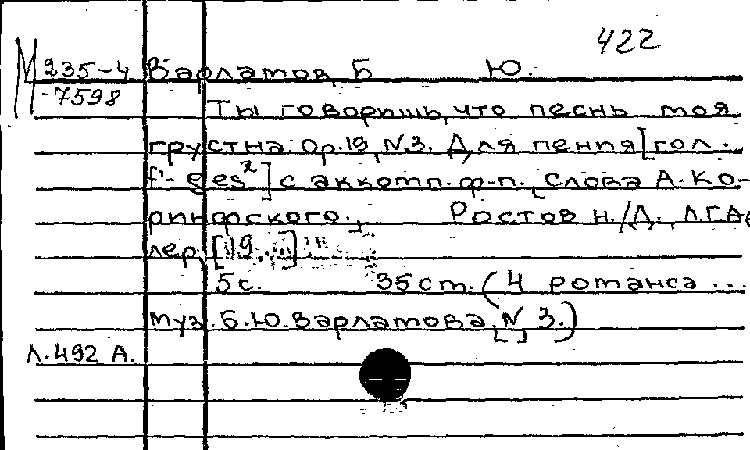 422
М 235-4 Варламов, Б Ю.
-7598
Ты говоришь, что песнь моя
грустна. Ор.19, N.3. Для пения [гол.
f'- ges²] с аккомп. ф-п., [слова А. Ко-
ринфского.] Ростов н./Д., Л.Г.Ад
лер, [19...]
5 с. 35 ст. (4 романса ...
муз. Б. Ю. Варламова, [N] 3.)
Л. 492 А.